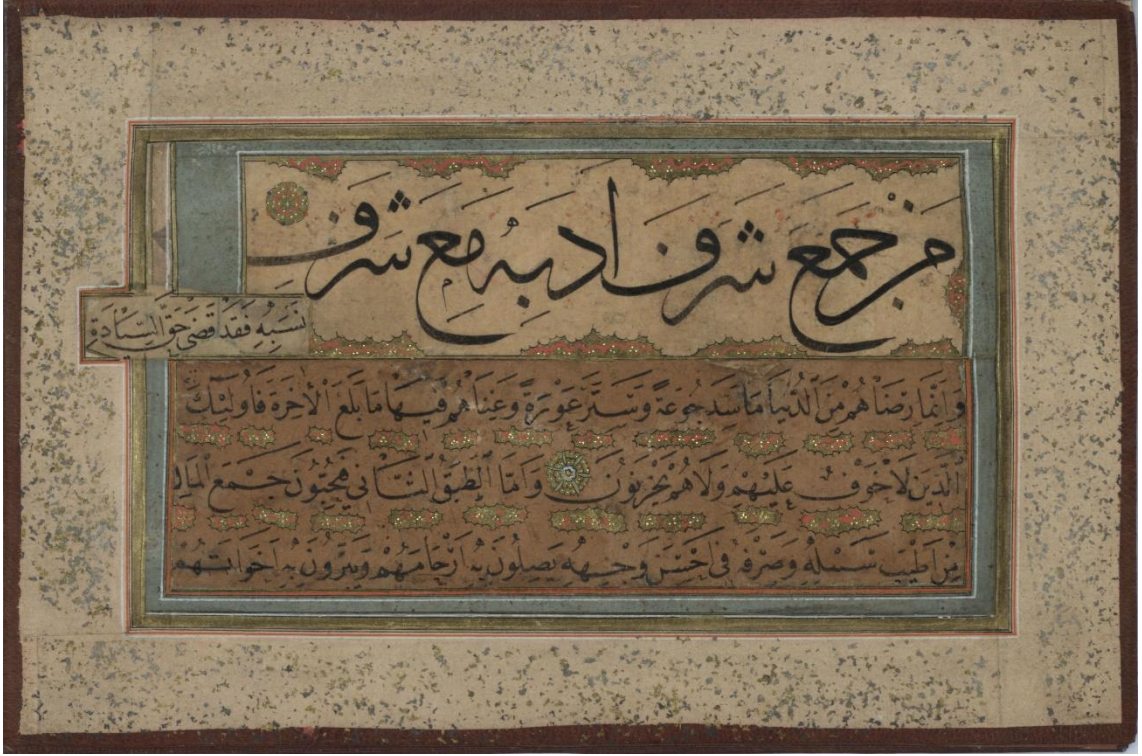 من جمع شرف ادبه مع شرف
نسبه فقد قضى حق السيادة
وانما رضاهم من الدنيا ما سد جوعة وستر عورة وغناهم فيها ما بلغ الآخرة فاولئك
الذين لا خوف عليهم ولا هم يحزنون واما الطبق الثاني فيحبون جمع المال
من اطيب سبيله وصرفه في احسن وجهه يصلون به ارحامهم ويبرون به اخوانهم